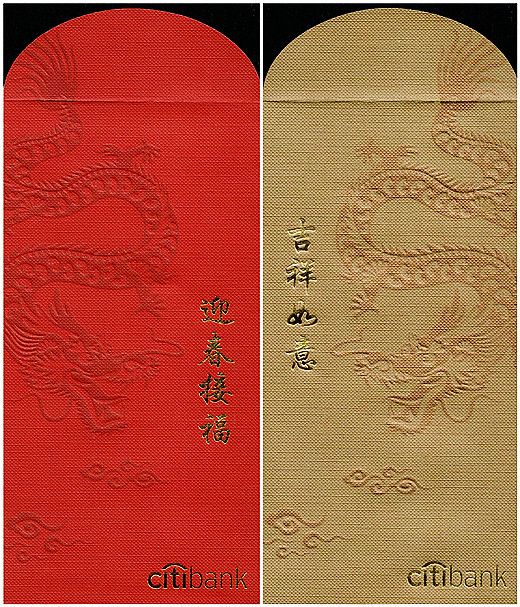 迎春接福
citibank
吉祥如意
citibank